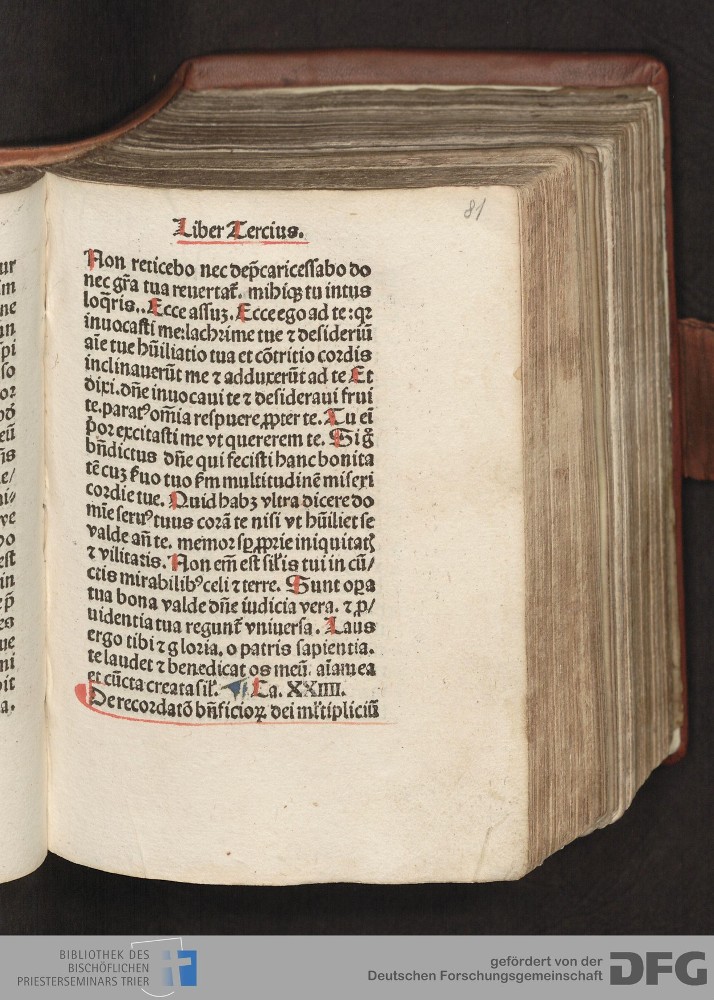 81
Liber Tercius.
Non reticebo nec dep̄caricessabo do
nec gr̄a tua reuertat᷑. mihiqꝫ tu intus
loq̄ris.. Ecce assuꝫ. Ecce ego ad te: qꝛ
inuocasti me: lachrime tue ⁊ desideriū
aīe tue hūiliatio tua et cōtritio cordis
inclinauerūt me ⁊ adduxerūt ad te Et
dixi. dn̄e inuocaui te ⁊ desideraui frui
te. paratꝰ om̄ia respuere ꝓpter te. Tu em̄
p̄or excitasti me vt quererem te. Sig̊
bn̄dictus dn̄e qui fecisti hanc bonita
tē cuꝫ ẜuo tuo ẜm multitudinē miseri
cordie tue. Quid habꝫ vltra dicere do
mīe seruꝰ tuus corā te nisi vt hūiliet se
valde an̄ te. memor sꝑ ꝓprie iniquitatꝭ
⁊ vilitatis. Non em̄ est sil̓is tui in cū/
ctis mirabilibꝰ celi ⁊ terre. Sunt oꝑa
tua bona valde dn̄e iudicia vera. ⁊ ꝓ/
uidentia tua regunt᷑ vniuersa. Laus
ergo tibi ⁊ gloria. o patris sapientia.
te laudet ⁊ benedicat os meū. aīa mea
et cūcta creata sil̓. Ca. XXIIII.
De recordatō bn̄ficioꝝ dei ml̓tipliciū
BIBLIOTHEK DES
BISCHÖFLICHEN
PRIESTERSEMINARS TRIER
gefördert von der
Deutschen Forschungsgemeinschaft DFG